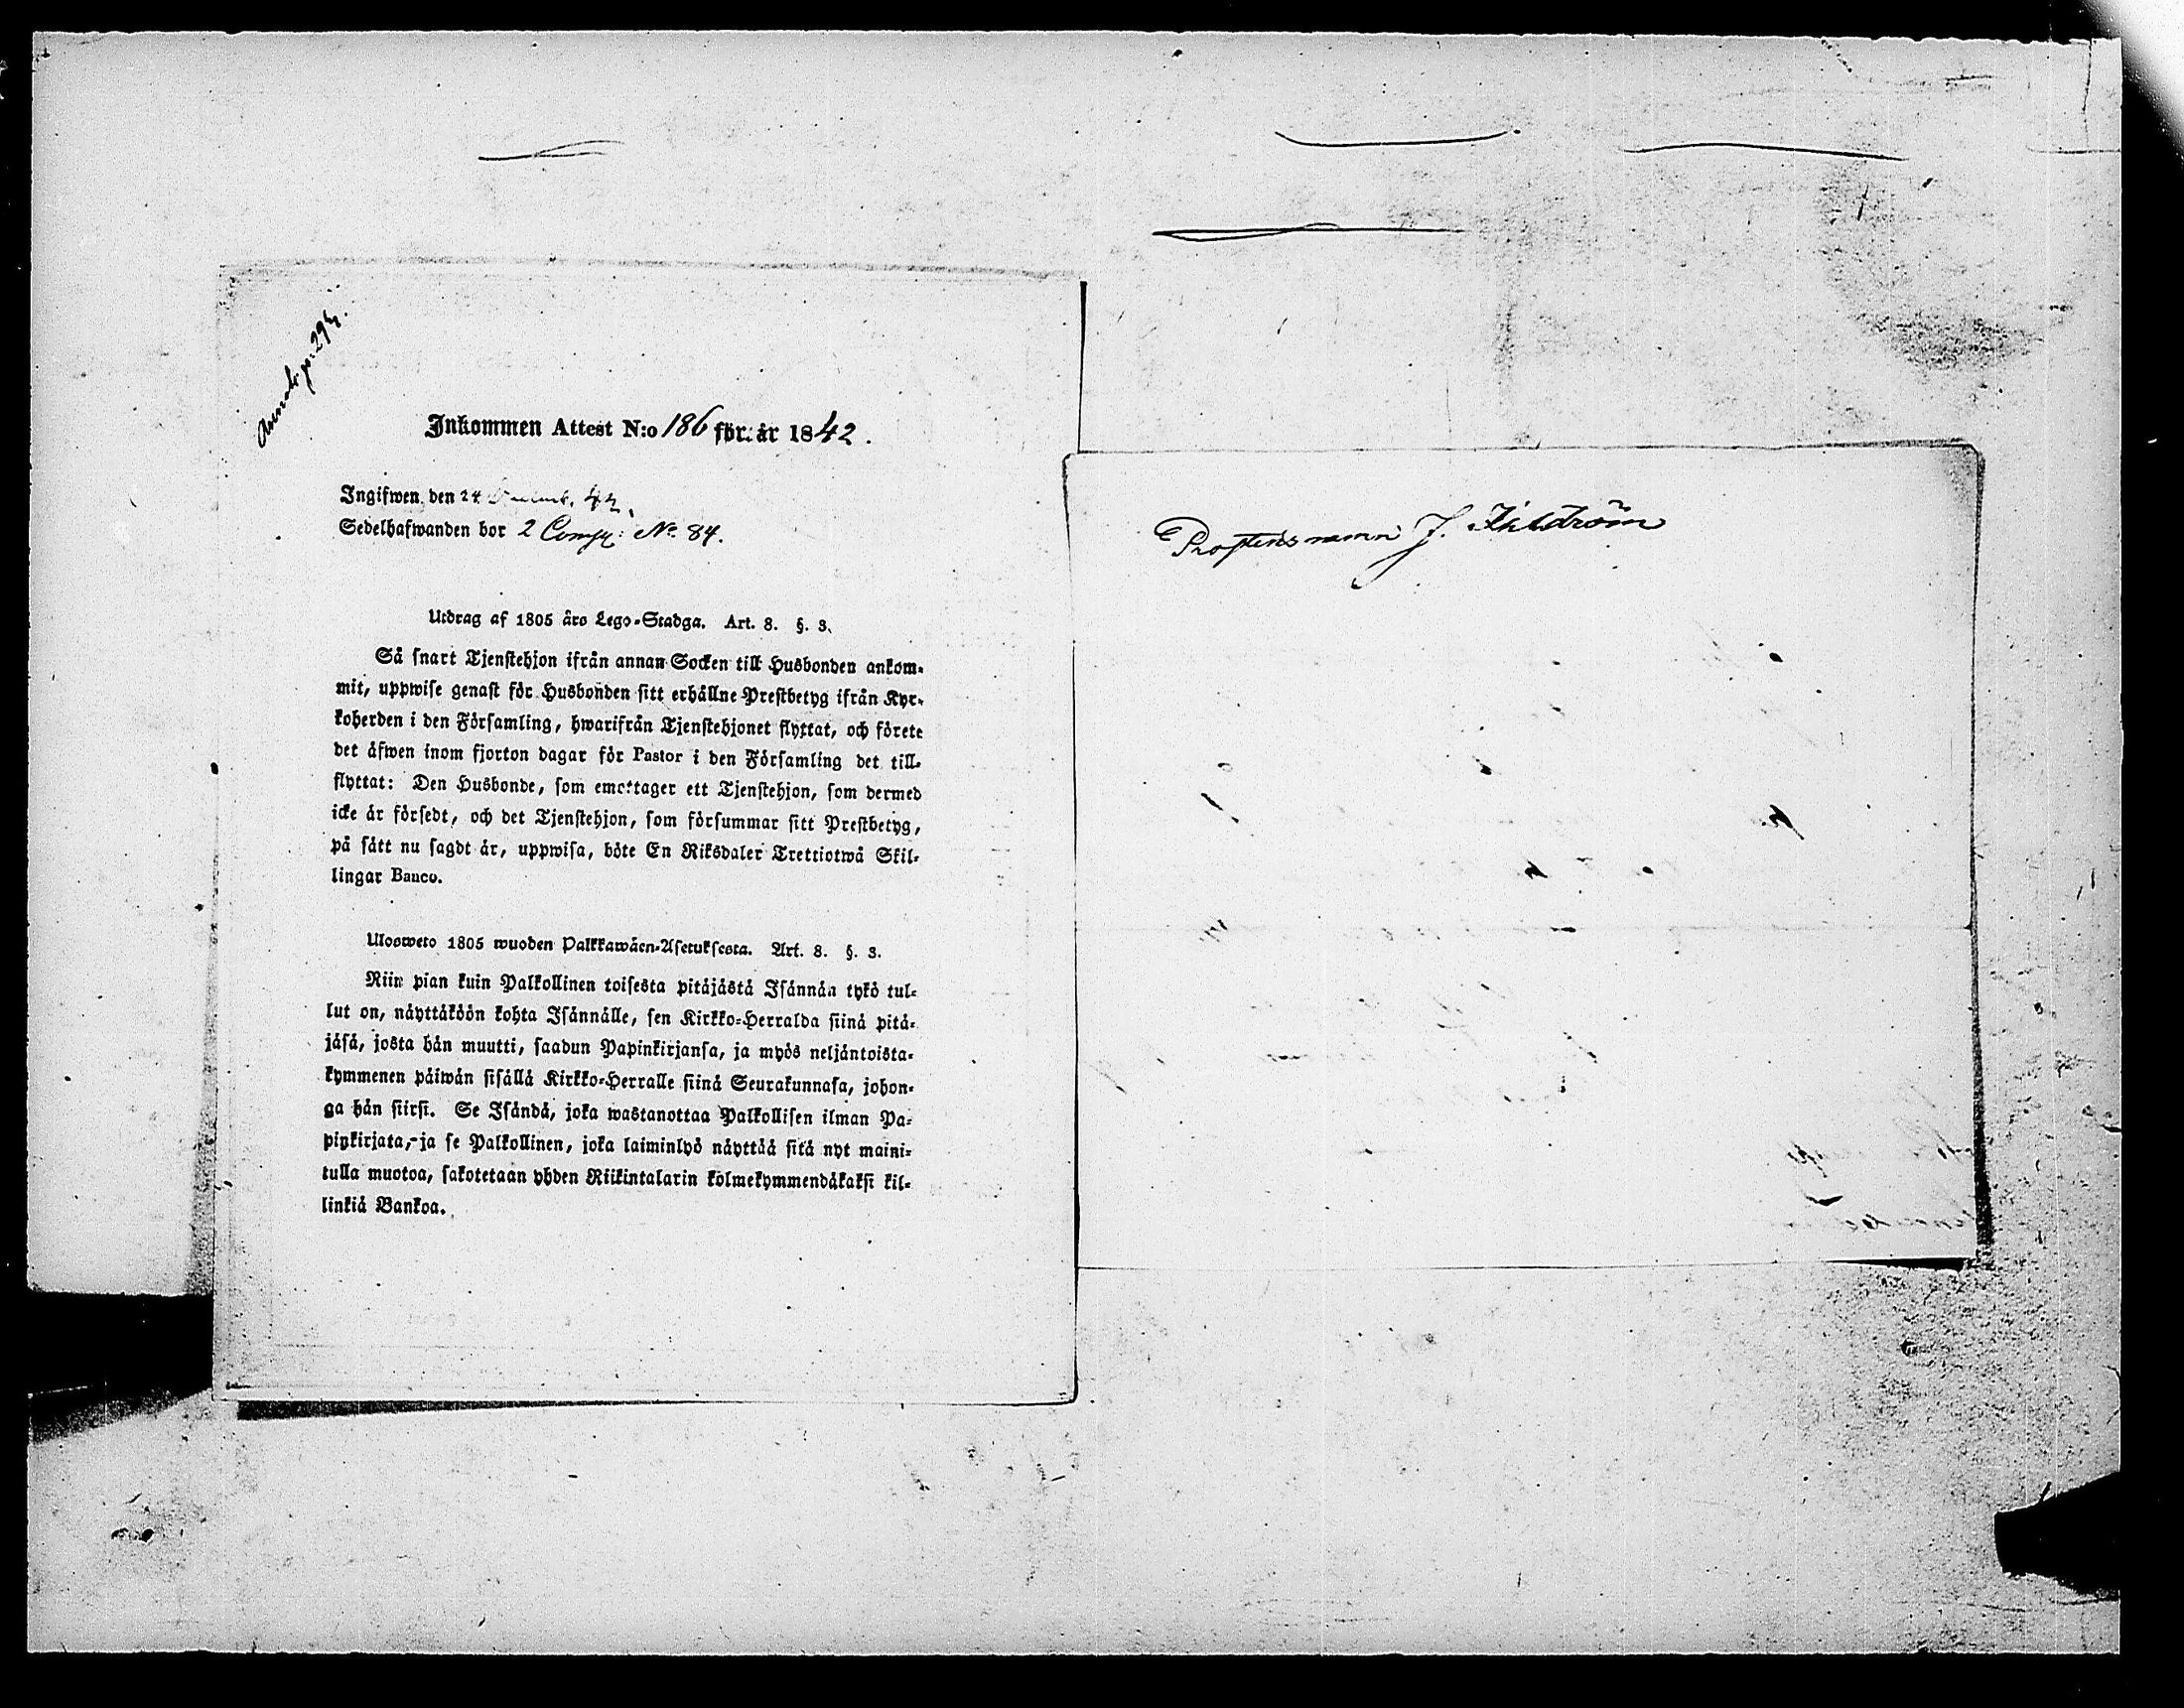 Inkommen Attest N:o 186 för år 1842.
Ingifwen den 24 42.
Sedelhafwanden bor 2 Comp: No 84.
Utdrag af 1805 års Lego-Stadga. Art. 8. §. 3.
Så snart Tjenstehjon ifrån annan Socken till Husbonden ankom-
mit, uppwise genast för Husbonden sitt erhållne Prestbetyg ifrån Kyr-
koherden i den Församling, hwarifrån Tjenstehjonet flyttat, och förete
det äfwen inom fjorton dagar för Pastor i den Församling det till-
flyttat: Den Husbonde, som emottager ett Tjenstehjon, som dermed
icke är försedt, och det Tjenstehjon, som försummar sitt Prestbetyg,
på sätt nu sagdt är, uppwisa, böte En Riksdaler Trettiotwå Skil-
lingar Banco.
Ulosweto 1805 wuoden Palkkawäen-Asetuksesta. Art. 8. §. 3.
Niin pian kuin Palkollinen toisesta pitäjästä Isännän tykö tul-
lut on, näyttäköön kohta Isännälle, sen Kirkko-Herralda siinä pitä-
jäsä, josta hän muutti, saadun Papinkirjansa, ja myös neljäntoista-
kymmenen päiwän sisällä Kirkko-Herralle siinä Seurakunnasa, johon-
ga hän siirsi. Se Isändä, joka wastanottaa Palkollisen ilman Pa-
pinkirjata, ja se Palkollinen, joka laiminlyö näyttää sitä nyt maini-
tulla muotoa, sakotetaan yhden Riikintalarin kolmekymmendäkaksi kil-
linkiä Bankoa.
J.